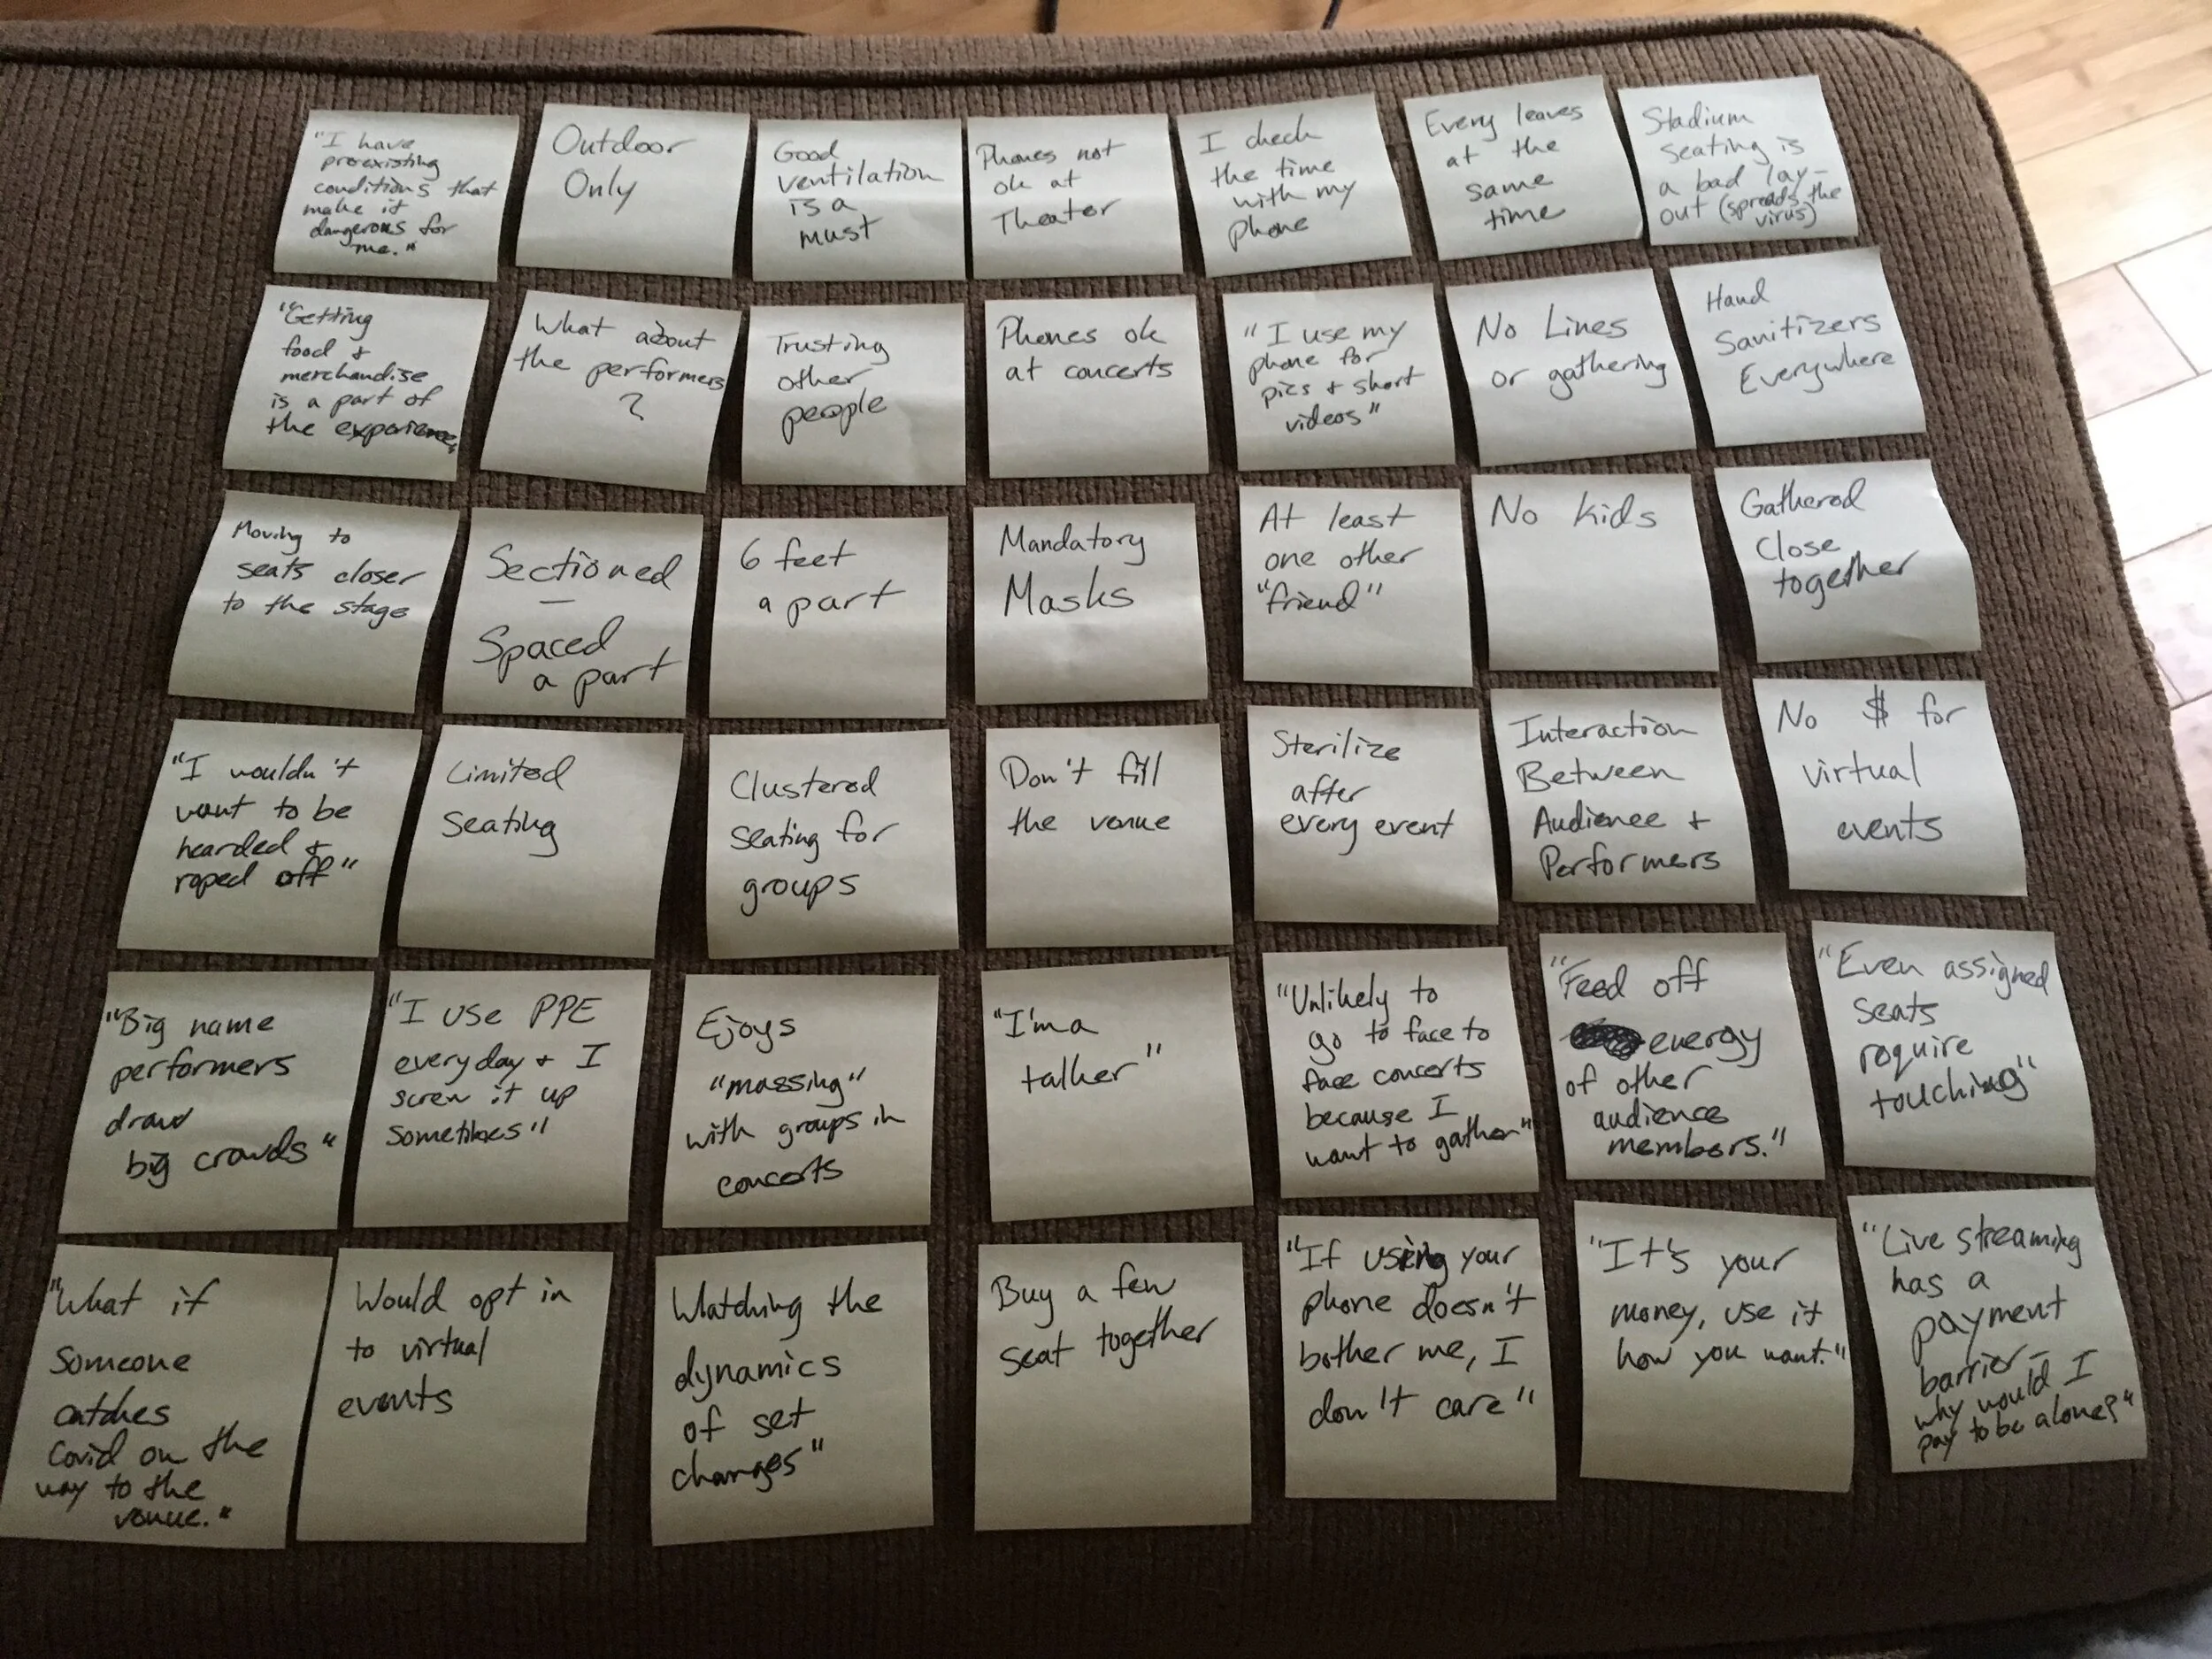 "I have
preexisting
conditions that
make it
dangerous for
me."
Outdoor
Only
Good
ventilation
is a
must
Phones not
ok at
Theater
I check
the time
with my
phone
Every leaves
at the
same
time
Stadium
seating is
a bad lay-
out (spreads the
virus)
"Getting
food &
merchandise
is a part of
the experience"
What about
the performers
?
Trusting
other
people
Phones ok
at concerts
"I use my
phone for
pics & short
videos"
No Lines
or gathering
Hand
Sanitizers
Everywhere
Moving to
seats closer
to the stage
Sectioned
—
Spaced
a part
6 feet
a part
Mandatory
Masks
At least
one other
"friend"
No kids
Gathered
Close
together
"I wouldn't
want to be
hearded &
roped off"
Limited
Seating
Clustered
seating for
groups
Don't fill
the venue
Sterilize
after
every event
Interaction
Between
Audience &
Performers
No $ for
virtual
events
"Big name
performers
draw
big crowds"
"I use PPE
everyday & I
screw it up
sometimes"
Ejoys
"massing"
with groups in
concerts
"I'm a
talker"
"Unlikely to
go to face to
face concerts
because I
want to gather"
"Feed off
energy
of other
audience
members."
"Even assigned
seats
require
touching"
"What if
someone
catches
Covid on the
way to the
venue."
Would opt in
to virtual
events
Watching the
dynamics
of set
changes"
Buy a few
seat together
"If using your
phone doesn't
bother me, I
don't care"
"It's your
money, use it
how you want."
"Live streaming
has a
payment
barrier-
why would I
pay to be alone?"